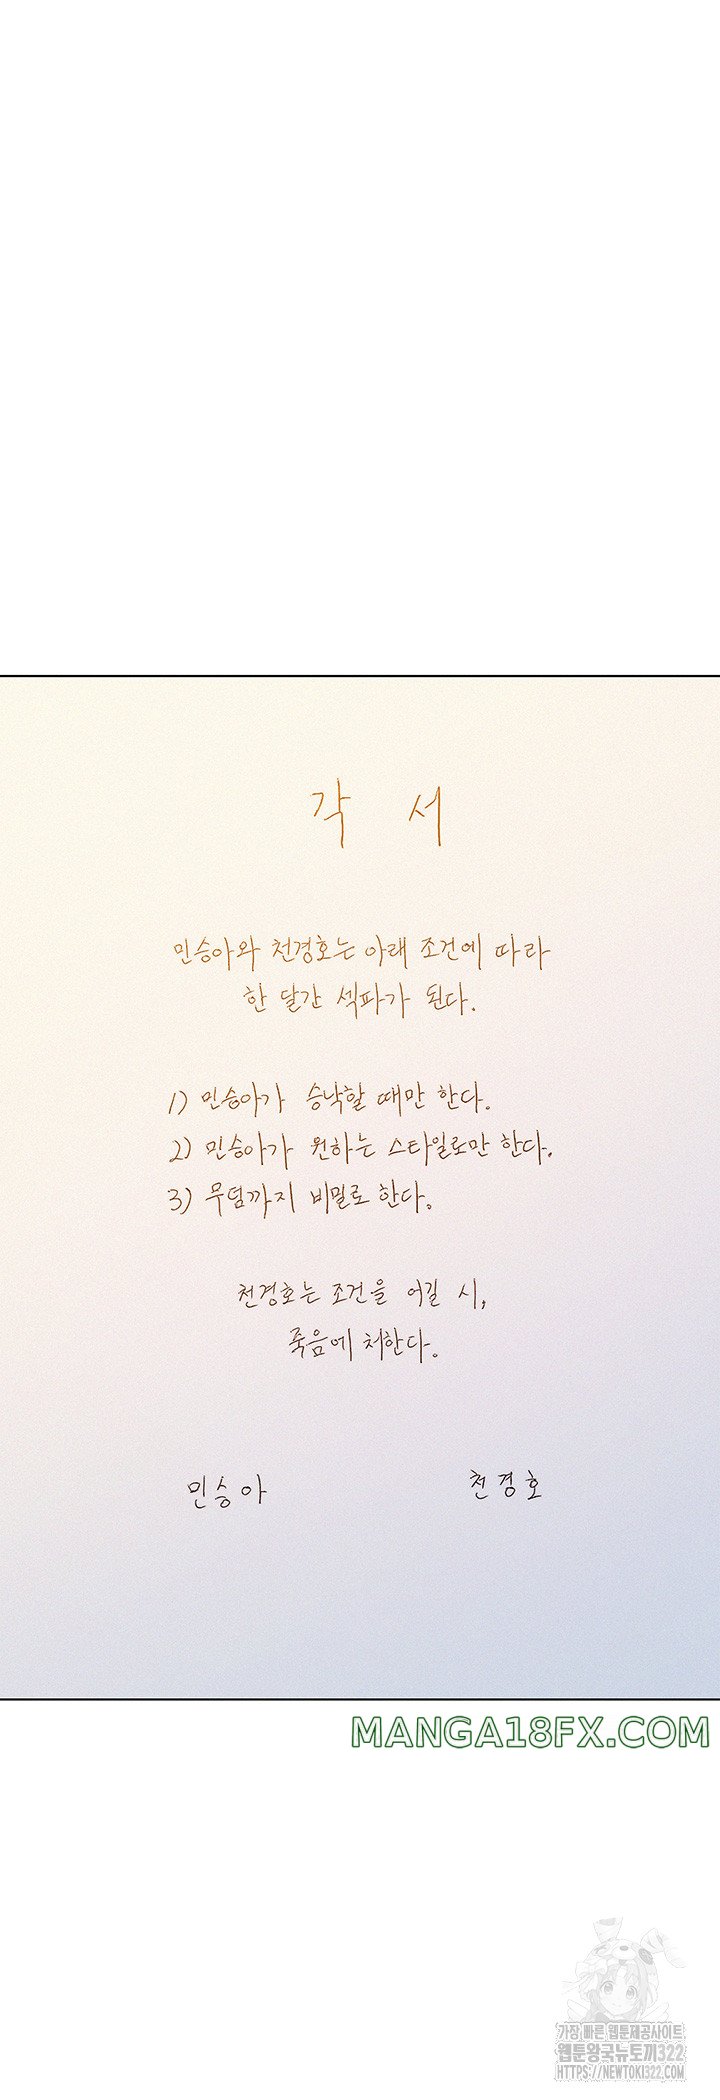 각 서
민승아와 천경호는 아래 조건에 따라
한 달간 섹파가 된다.
1) 민승아가 승낙할 때만 한다.
2) 민승아가 원하는 스타일로만 한다.
3) 무덤까지 비밀로 한다.
천경호는 조건을 어길 시,
죽음에 처한다.
민승아 천경호
MANGA18FX.COM
가장 빠른 웹툰제공사이트
웹툰왕국뉴토끼322
HTTPS://NEWTOKI322.COM